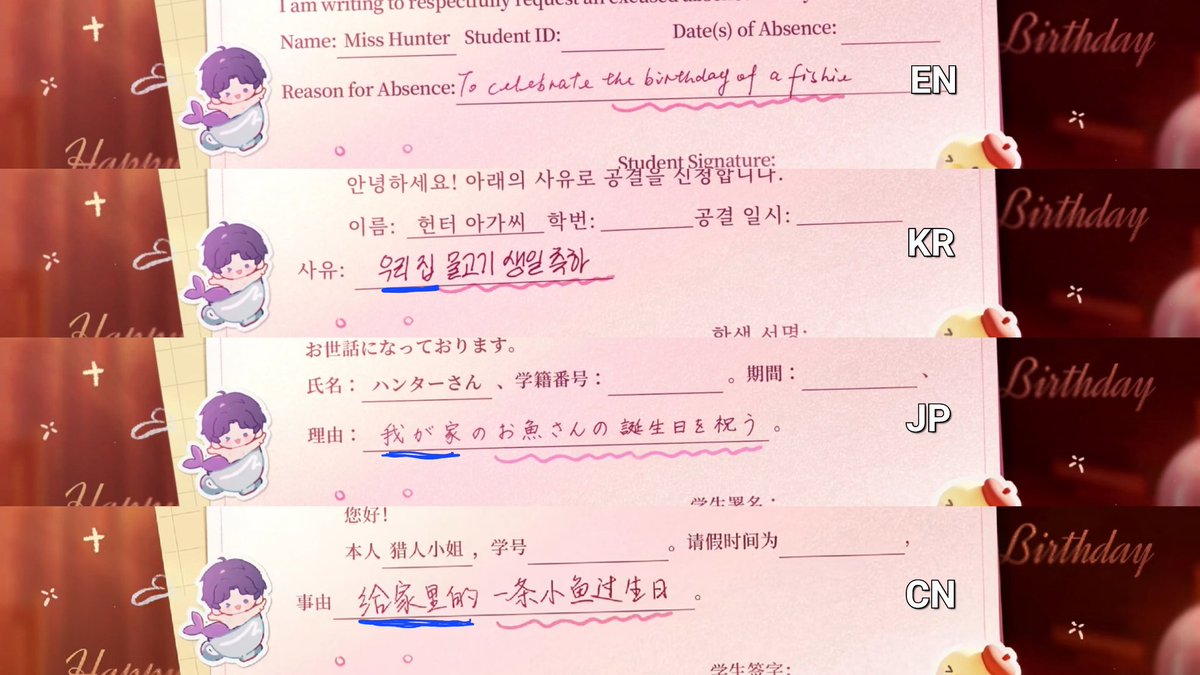 I am writing to respectfully request an excused absence
Name: Miss Hunter Student ID: Date(s) of Absence:
Reason for Absence: To celebrate the birthday of a fishie
EN
Student Signature:
Birthday
Happy
안녕하세요! 아래의 사유로 공결을 신청합니다.
이름: 헌터 아가씨 학번: 공결 일시:
사유: 우리 집 물고기 생일 축하
KR
학생 서명:
Birthday
Happy
お世話になっております。
氏名: ハンターさん 、学籍番号: 。期間: 、
理由: 我が家のお魚さんの誕生日を祝う 。
JP
学生署名:
Birthday
Happy
您好!
本人 猎人小姐 ，学号 。请假时间为 ，
事由 给家里的一条小鱼过生日 。
CN
学生签字:
Birthday
Happy